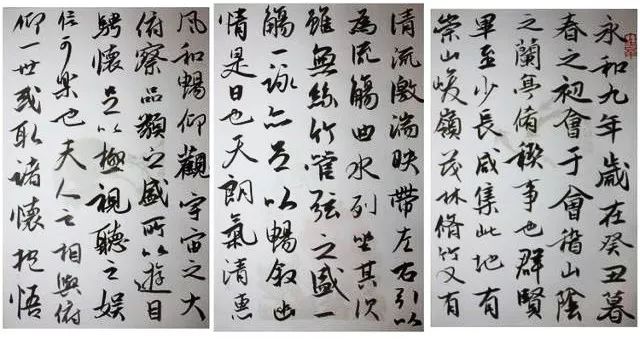 永和九年歲在癸丑暮
春之初會于會稽山陰
之蘭亭脩稧事也群賢
畢至少長咸集此地有
崇山峻嶺茂林脩竹又有
清流激湍映帶左右引以
為流觴曲水列坐其次
雖無絲竹管弦之盛一
觴一詠亦足以暢叙幽
情是日也天朗氣清惠
風和暢仰觀宇宙之大
俯察品類之盛所以遊目
騁懷足以極視聽之娛
信可樂也夫人之相與俯
仰一世或取諸懷抱悟